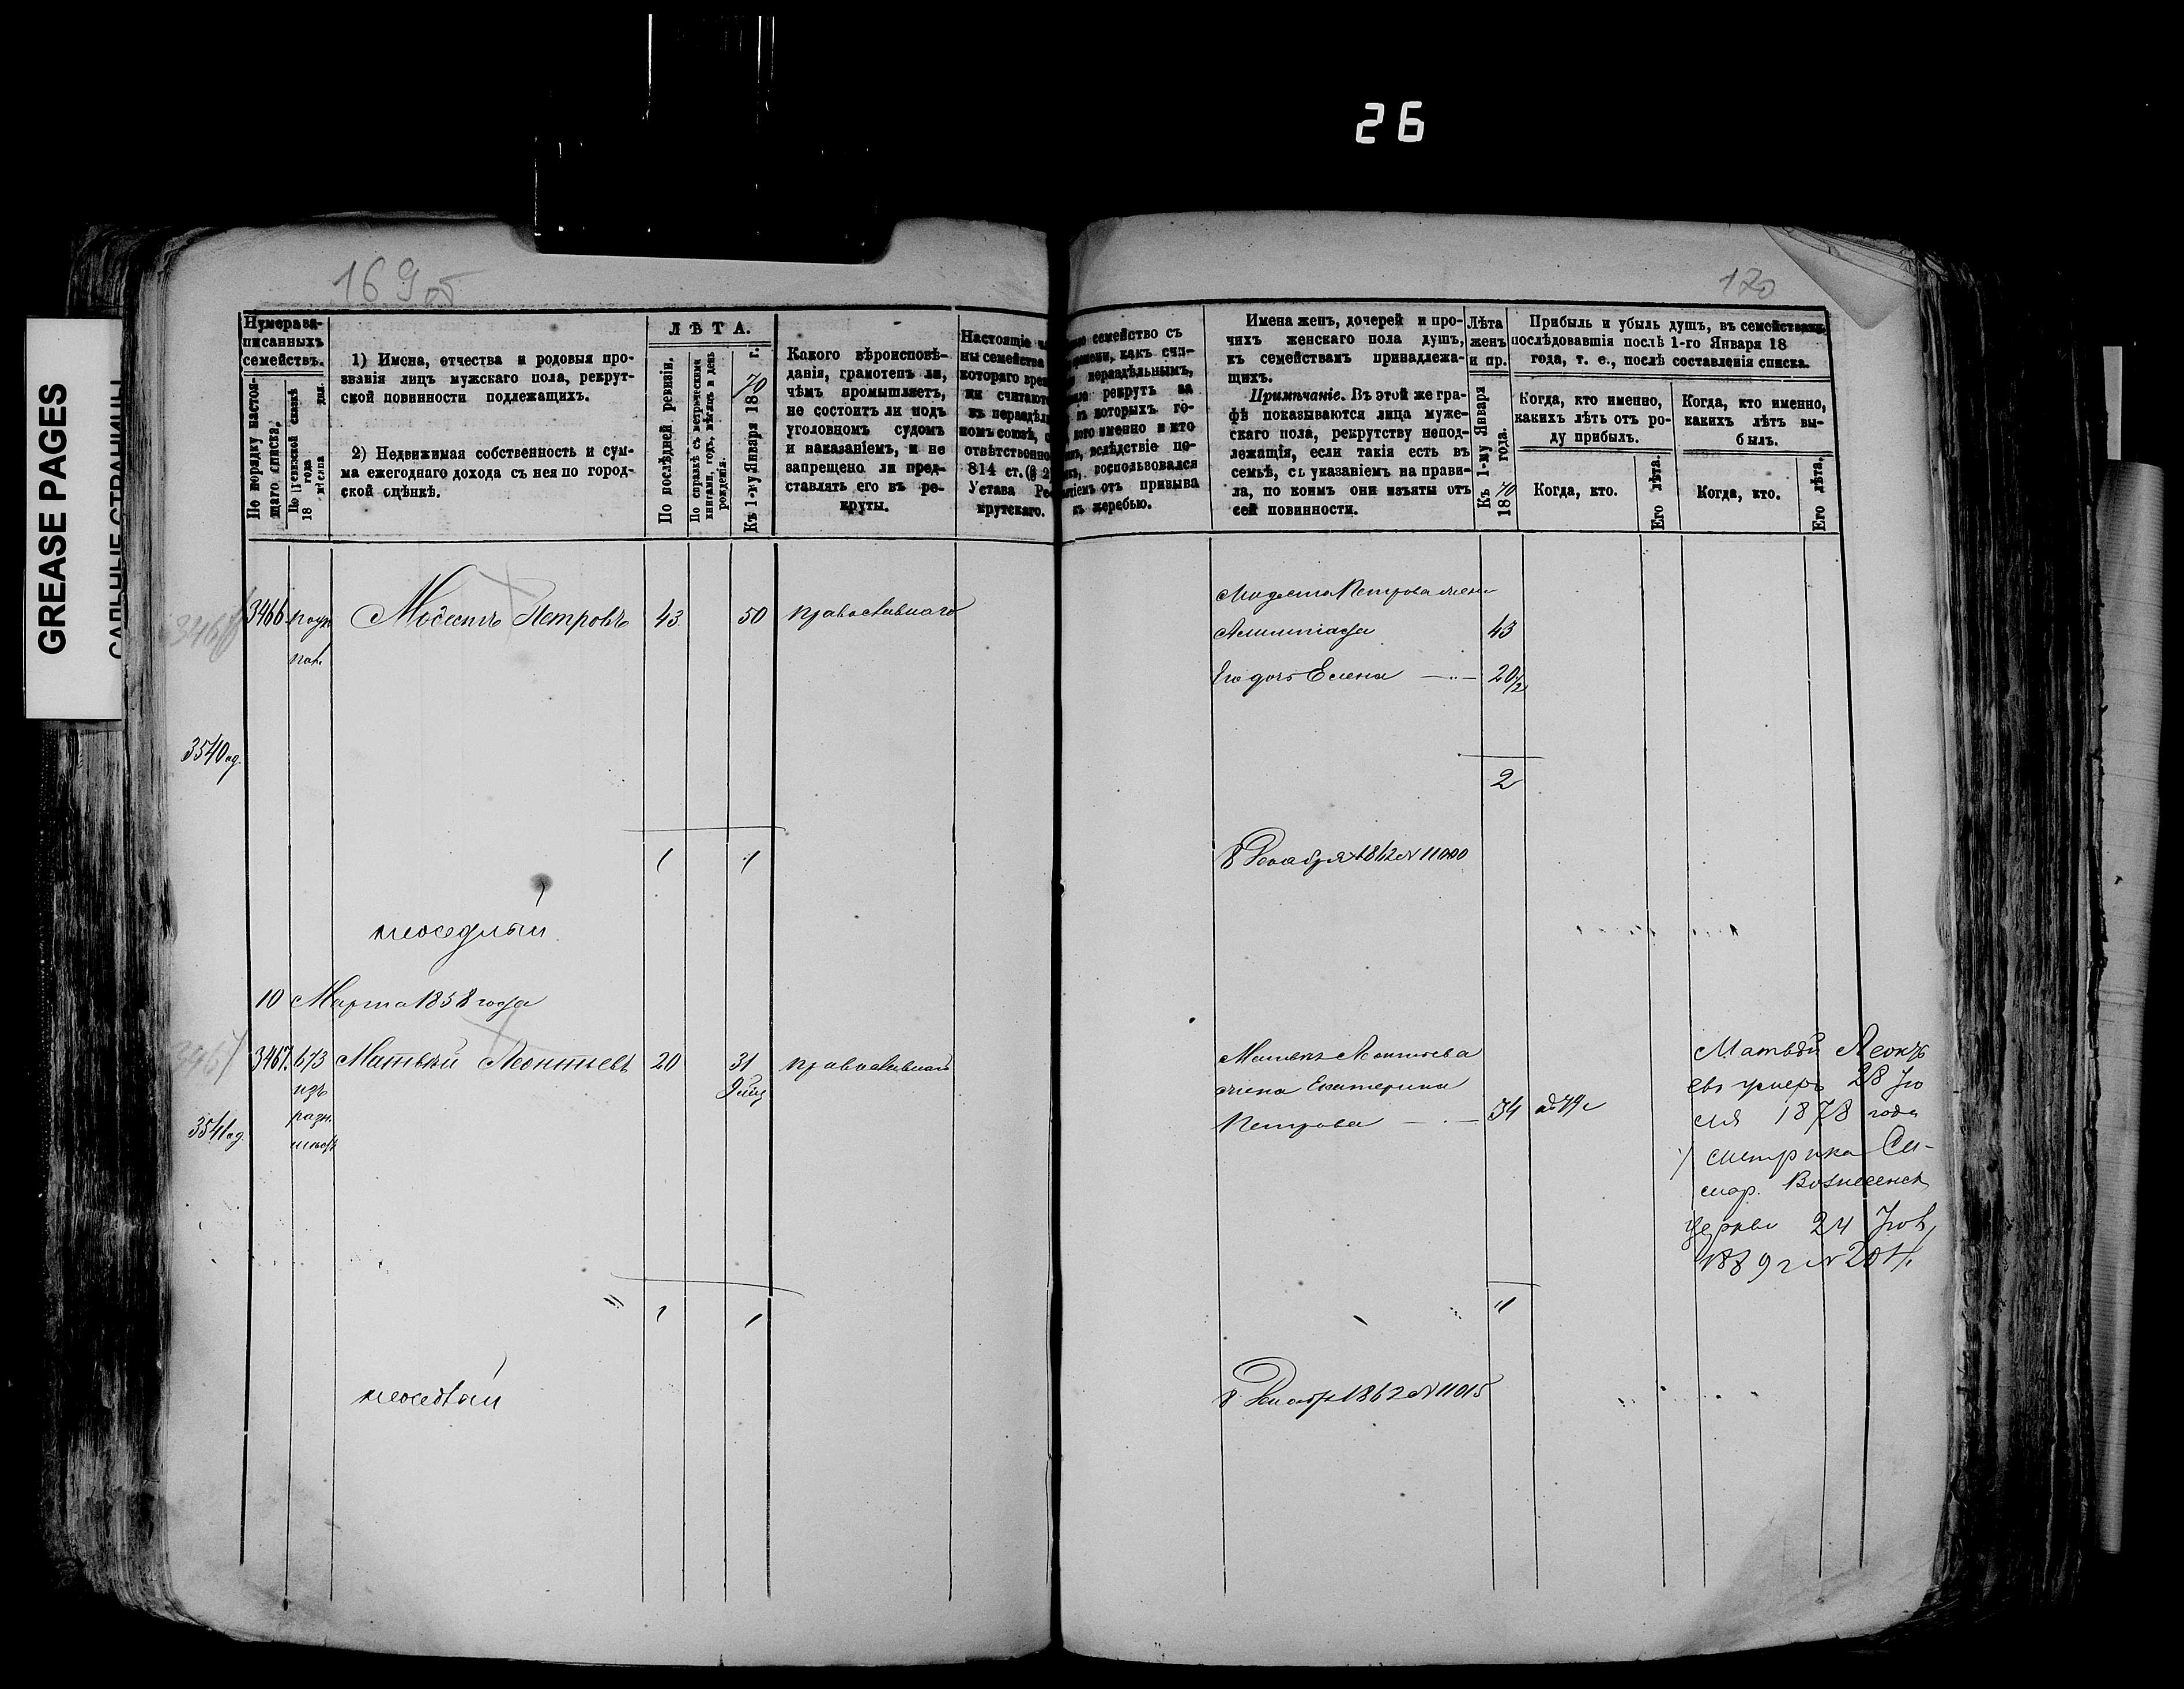 26
GREASE PAGES
169об
170
Нумера за-
писанныхъ
семействъ.
По порядку настоя-
щаго списка.
По ревизской сказкѣ
18 года
мѣсяца дня.
1) Имена, отчества и родовыя про-
званія лицъ мужскаго пола, рекрут-
ской повинности подлежащихъ.
2) Недвижимая собственность и сум-
ма ежегоднаго дохода съ нея по город-
ской оцѣнкѣ.
ЛѢТА.
По послѣдней ревизіи.
По справкѣ съ метрическими
книгами, годъ, мѣсяцъ и день
рожденія.
Къ 1-му Января 1870 г.
Какого вѣроисповѣ-
данія, грамотенъ ли,
чѣмъ промышляетъ,
не состоитъ ли подъ
уголовномъ судомъ
и наказаніемъ, и не
запрещено ли пред-
ставлять его въ ре-
круты.
Настоящіе
ны семейства
котораго вре
ни считаютс
въ нераздѣл
номъ союзѣ,
отвѣтственно
814 ст. (§ 2
Устава Ре
крутскаго.
семейство съ
времени, какъ счи-
нераздѣльнымъ,
рекрутъ за
въ которыхъ го-
кого именно и кто
вслѣдствіе по-
воспользовался
тіемъ отъ призыва
къ жеребью.
Имена женъ, дочерей и про-
чихъ женскаго пола душъ,
къ семействамъ принадлежа-
щихъ.
Примѣчаніе. Въ этой же гра-
фѣ показываются лица муже-
скаго пола, рекрутству непод-
лежащія, если такія есть въ
семьѣ, съ указаніемъ на прави-
ла, по коимъ они изъяты отъ
сей повинности.
Лѣта
женъ
и пр.
Къ 1-му Января
1870 года.
Прибыль и убыль душъ, въ семействахъ
послѣдовавшія послѣ 1-го Января 18
года, т. е., послѣ составленія списка.
Когда, кто именно,
какихъ лѣтъ отъ ро-
ду прибылъ.
Когда, кто именно,
какихъ лѣтъ вы-
былъ.
Когда, кто.
Его лѣта.
Когда, кто.
Его лѣта.
3466
3466
Модестъ Петровъ
43
50
православнаго
Модеста Петрова жена
43
Его дочь Елена
20½
3540 ад.
2
1
1
8 Декабря 1862 № 11000
неоседлый
10 Марта 1858 года
3467
3467.
673
изъ
разн.
Матвѣй Леонтьевъ
20
31
православнаго
Матвѣя Леонтьева
жена Екатерина
Петрова
34
3541 ад.
Матвѣй Леонть
евъ умеръ 28 Ію
ля 1878 года
метрика Си-
мф. Вознесенск
церкви 24
1889 г № 204.
1
1
1
неоседлый
8 Декабря 1862 № 11015